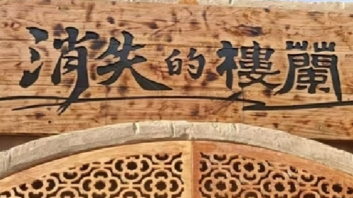 消失的樓蘭